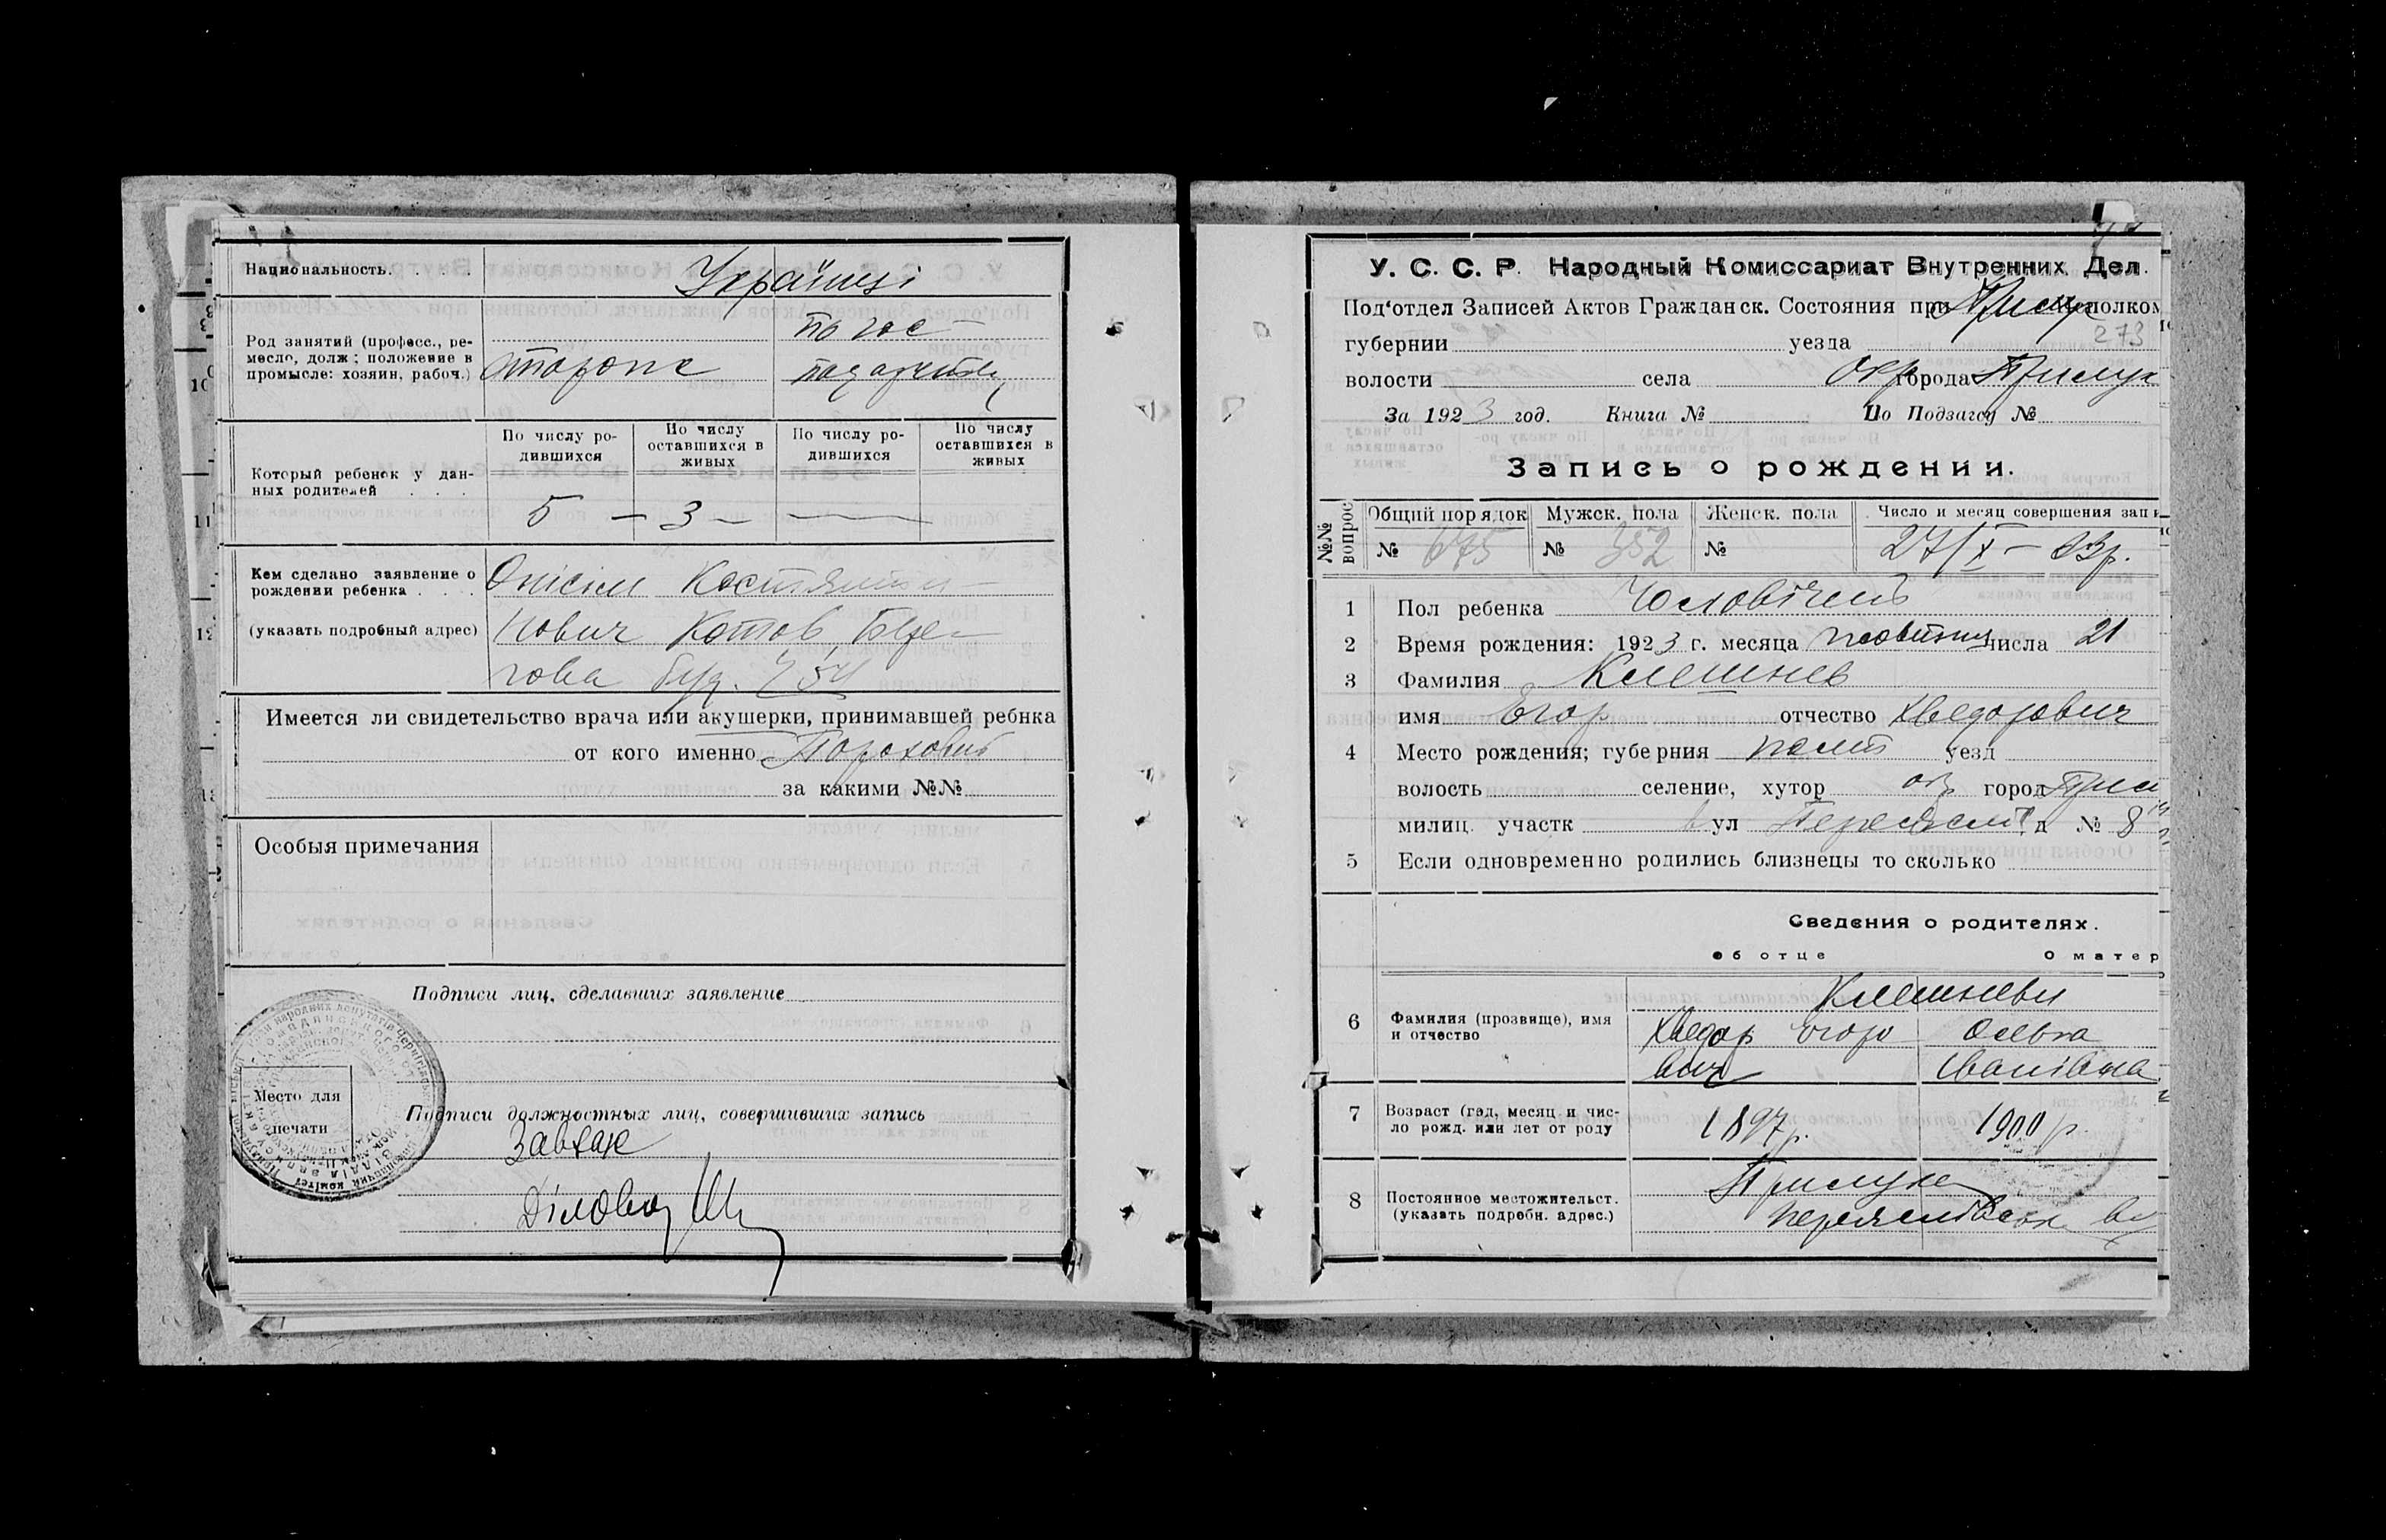 Национальность. . . . Українці
Род занятий (професс., ре-
месло, долж; положение в
промысле: хозяин, рабоч.)
сторож
по гос-
подарству
Который ребенок у дан-
ных родителей . . .
По числу ро-
дившихся
По числу
оставшихся в
живых
По числу ро-
дившихся
По числу
оставшихся в
живых
5 — 3 —
Кем сделано заявление о
рождении ребенка . . .
(указать подробный адрес)
Онісім Костянти-
нович Котов
буд. 54
Имеется ли свидетельство врача или акушерки, принимавшей ребнка
от кого именно
за какими №№
Особыя примечания
Подписи лиц, сделавших заявление
Место для
печати
Подписи должностных лиц, совершивших запись
Завзаг
Діловод
У. С. С. Р. Народный Комиссариат Внутренних Дел.
Под‘отдел Записей Актов Гражданск. Состояния при Прилуц полком
273
губернии уезда
волости села Окр города Прилук
За 1923 год. Книга № По Подзагсу №
Запись о рождении.
№№ вопрос
Общий порядок Мужск. пола Женск. пола Число и месяц совершения запи
№ 675 № 352 № 27/X — 23р.
1 Пол ребенка Чоловічий
2 Время рождения: 1923 г. месяца жовтня числа 21
3 Фамилия Клешнев
имя Егор отчество Хведорович
4 Место рождения; губерния Полт уезд
волость селение, хутор город Прил
милиц. участк ул Переясл д № 8
5 Если одновременно родились близнецы то сколько
Сведения о родителях.
об отце О матер
6 Фамилия (прозвище), имя
и отчество
Клешневи
Хведор Егоро
вич
Ольга
Іванівна
7 Возраст (год, месяц и чис-
ло рожд. или лет от роду
1897р. 1900р.
8 Постоянное местожительст.
(указать подробн. адрес.)
Прилука
Переяслівськ ву